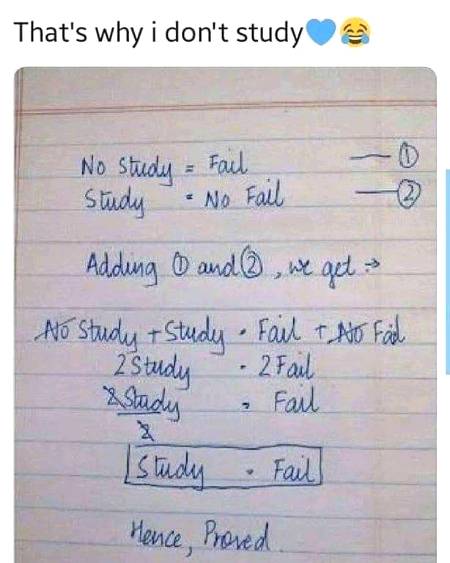 That's why i don't study💙😂
No Study = Fail — ①
Study = No Fail — ②
Adding ① and ②, we get →
No Study + Study = Fail + No Fail
2 Study = 2 Fail
2 Study = Fail
2
Study = Fail
Hence, Proved.